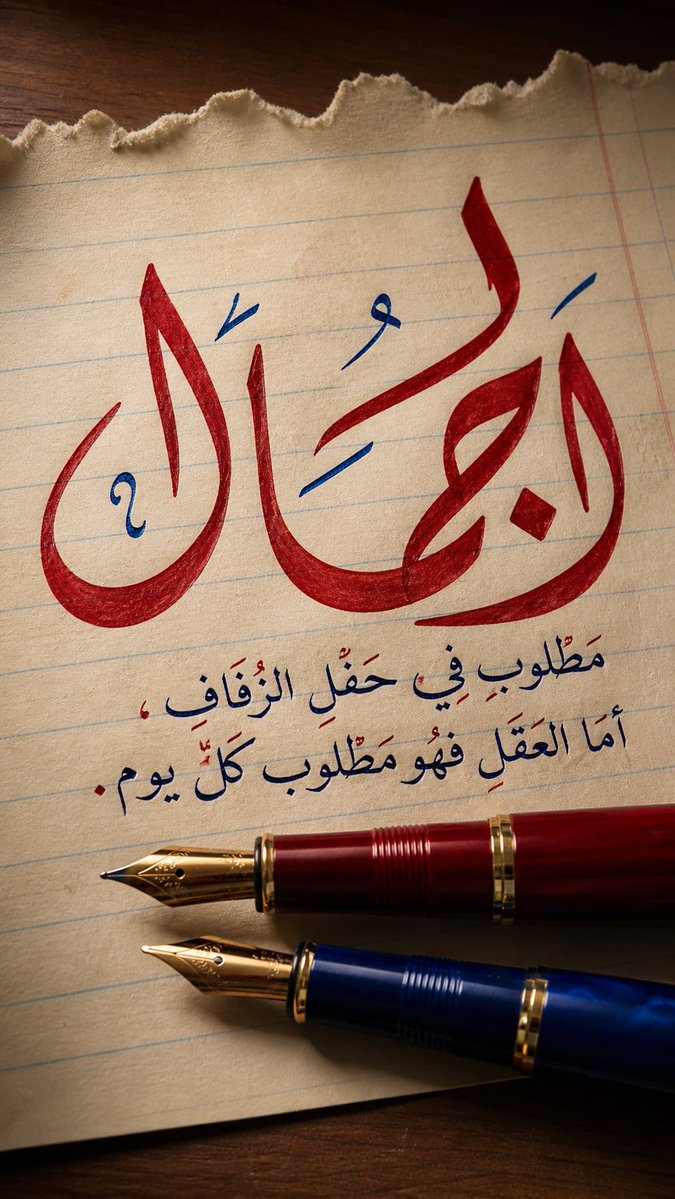 الجمال
مَطْلوبِ فِي حَفْلِ الزُفَافِ ،
أمَا العَقَلِ فهُو مَطْلوب كَلُّ يوم.